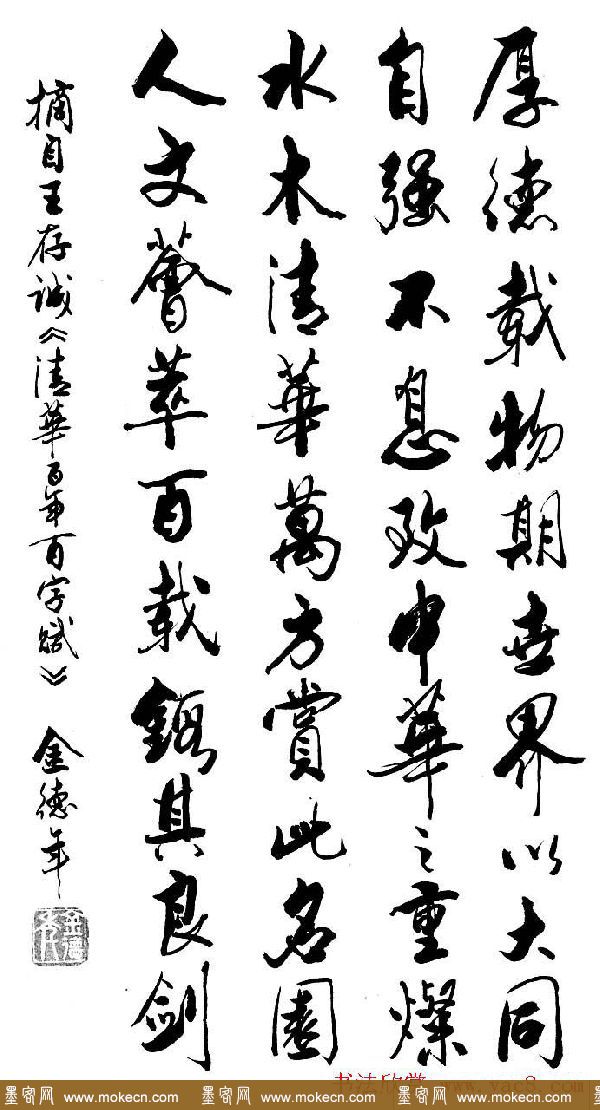 厚德載物期世界以大同
自强不息致中華之重燦
水木清華萬方賞此名園
人文薈萃百載鑄其良劍
摘自王存诚《清華百年百字赋》 金德年
书法欣赏 www.yac8.com
墨客网 www.mokecn.com 墨客网 www.mokecn.com 墨客网 www.mokecn.com